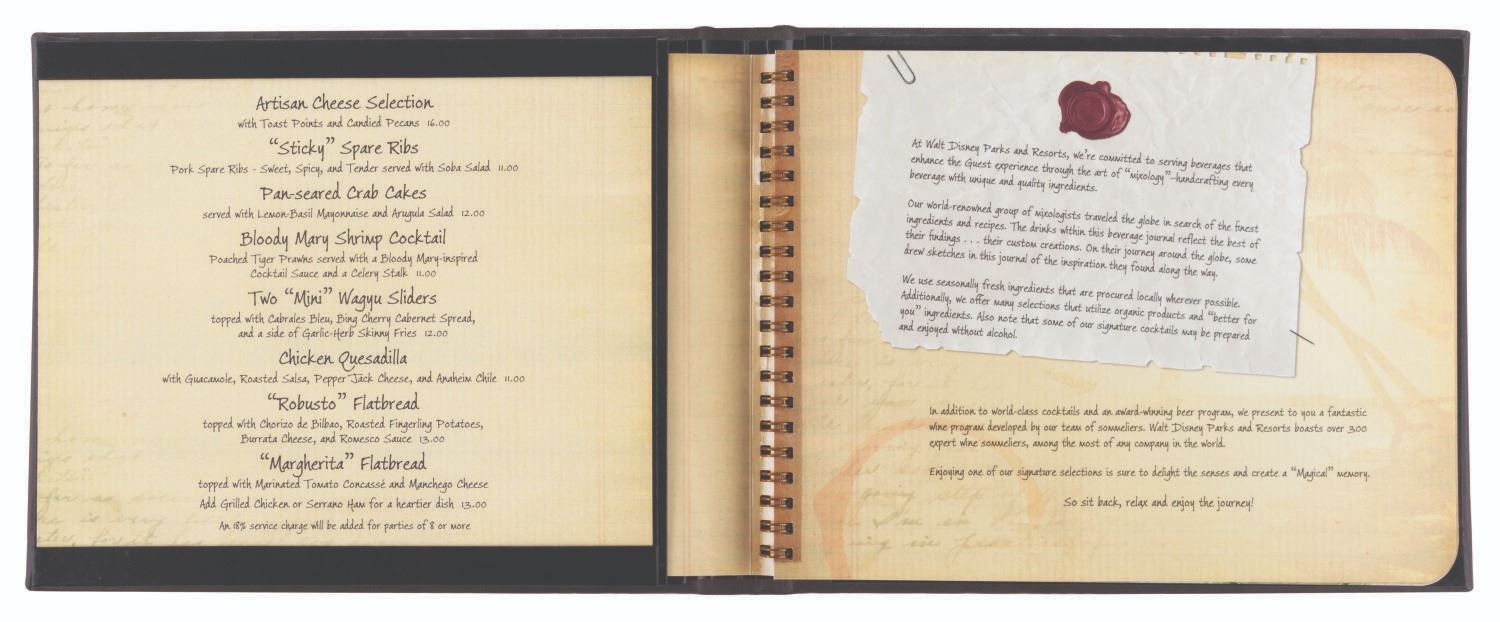 Artisan Cheese Selection
with Toast Points and Candied Pecans 16.00
“Sticky” Spare Ribs
Pork Spare Ribs - Sweet, Spicy, and Tender served with Soba Salad 11.00
Pan-seared Crab Cakes
served with Lemon-Basil Mayonnaise and Arugula Salad 12.00
Bloody Mary Shrimp Cocktail
Poached Tiger Prawns served with a Bloody Mary-inspired
Cocktail Sauce and a Celery Stalk 11.00
Two “Mini” Wagyu Sliders
topped with Cabrales Bleu, Bing Cherry Cabernet Spread,
and a side of Garlic-Herb Skinny Fries 12.00
Chicken Quesadilla
with Guacamole, Roasted Salsa, Pepper Jack Cheese, and Anaheim Chile 11.00
“Robusto” Flatbread
topped with Chorizo de Bilbao, Roasted Fingerling Potatoes,
Burrata Cheese, and Romesco Sauce 13.00
“Margherita” Flatbread
topped with Marinated Tomato Concassé and Manchego Cheese
Add Grilled Chicken or Serrano Ham for a heartier dish 13.00
An 18% service charge will be added for parties of 8 or more
At Walt Disney Parks and Resorts, we're committed to serving beverages that
enhance the Guest experience through the art of “mixology”-handcrafting every
beverage with unique and quality ingredients.
Our world-renowned group of mixologists traveled the globe in search of the finest
ingredients and recipes. The drinks within this beverage journal reflect the best of
their findings . . . their custom creations. On their journey around the globe, some
drew sketches in this journal of the inspiration they found along the way.
We use seasonally fresh ingredients that are procured locally wherever possible.
Additionally, we offer many selections that utilize organic products and “better for
you” ingredients. Also note that some of our signature cocktails may be prepared
and enjoyed without alcohol.
In addition to world-class cocktails and an award-winning beer program, we present to you a fantastic
wine program developed by our team of sommeliers. Walt Disney Parks and Resorts boasts over 300
expert wine sommeliers, among the most of any company in the world.
Enjoying one of our signature selections is sure to delight the senses and create a “Magical” memory.
So sit back, relax and enjoy the journey!